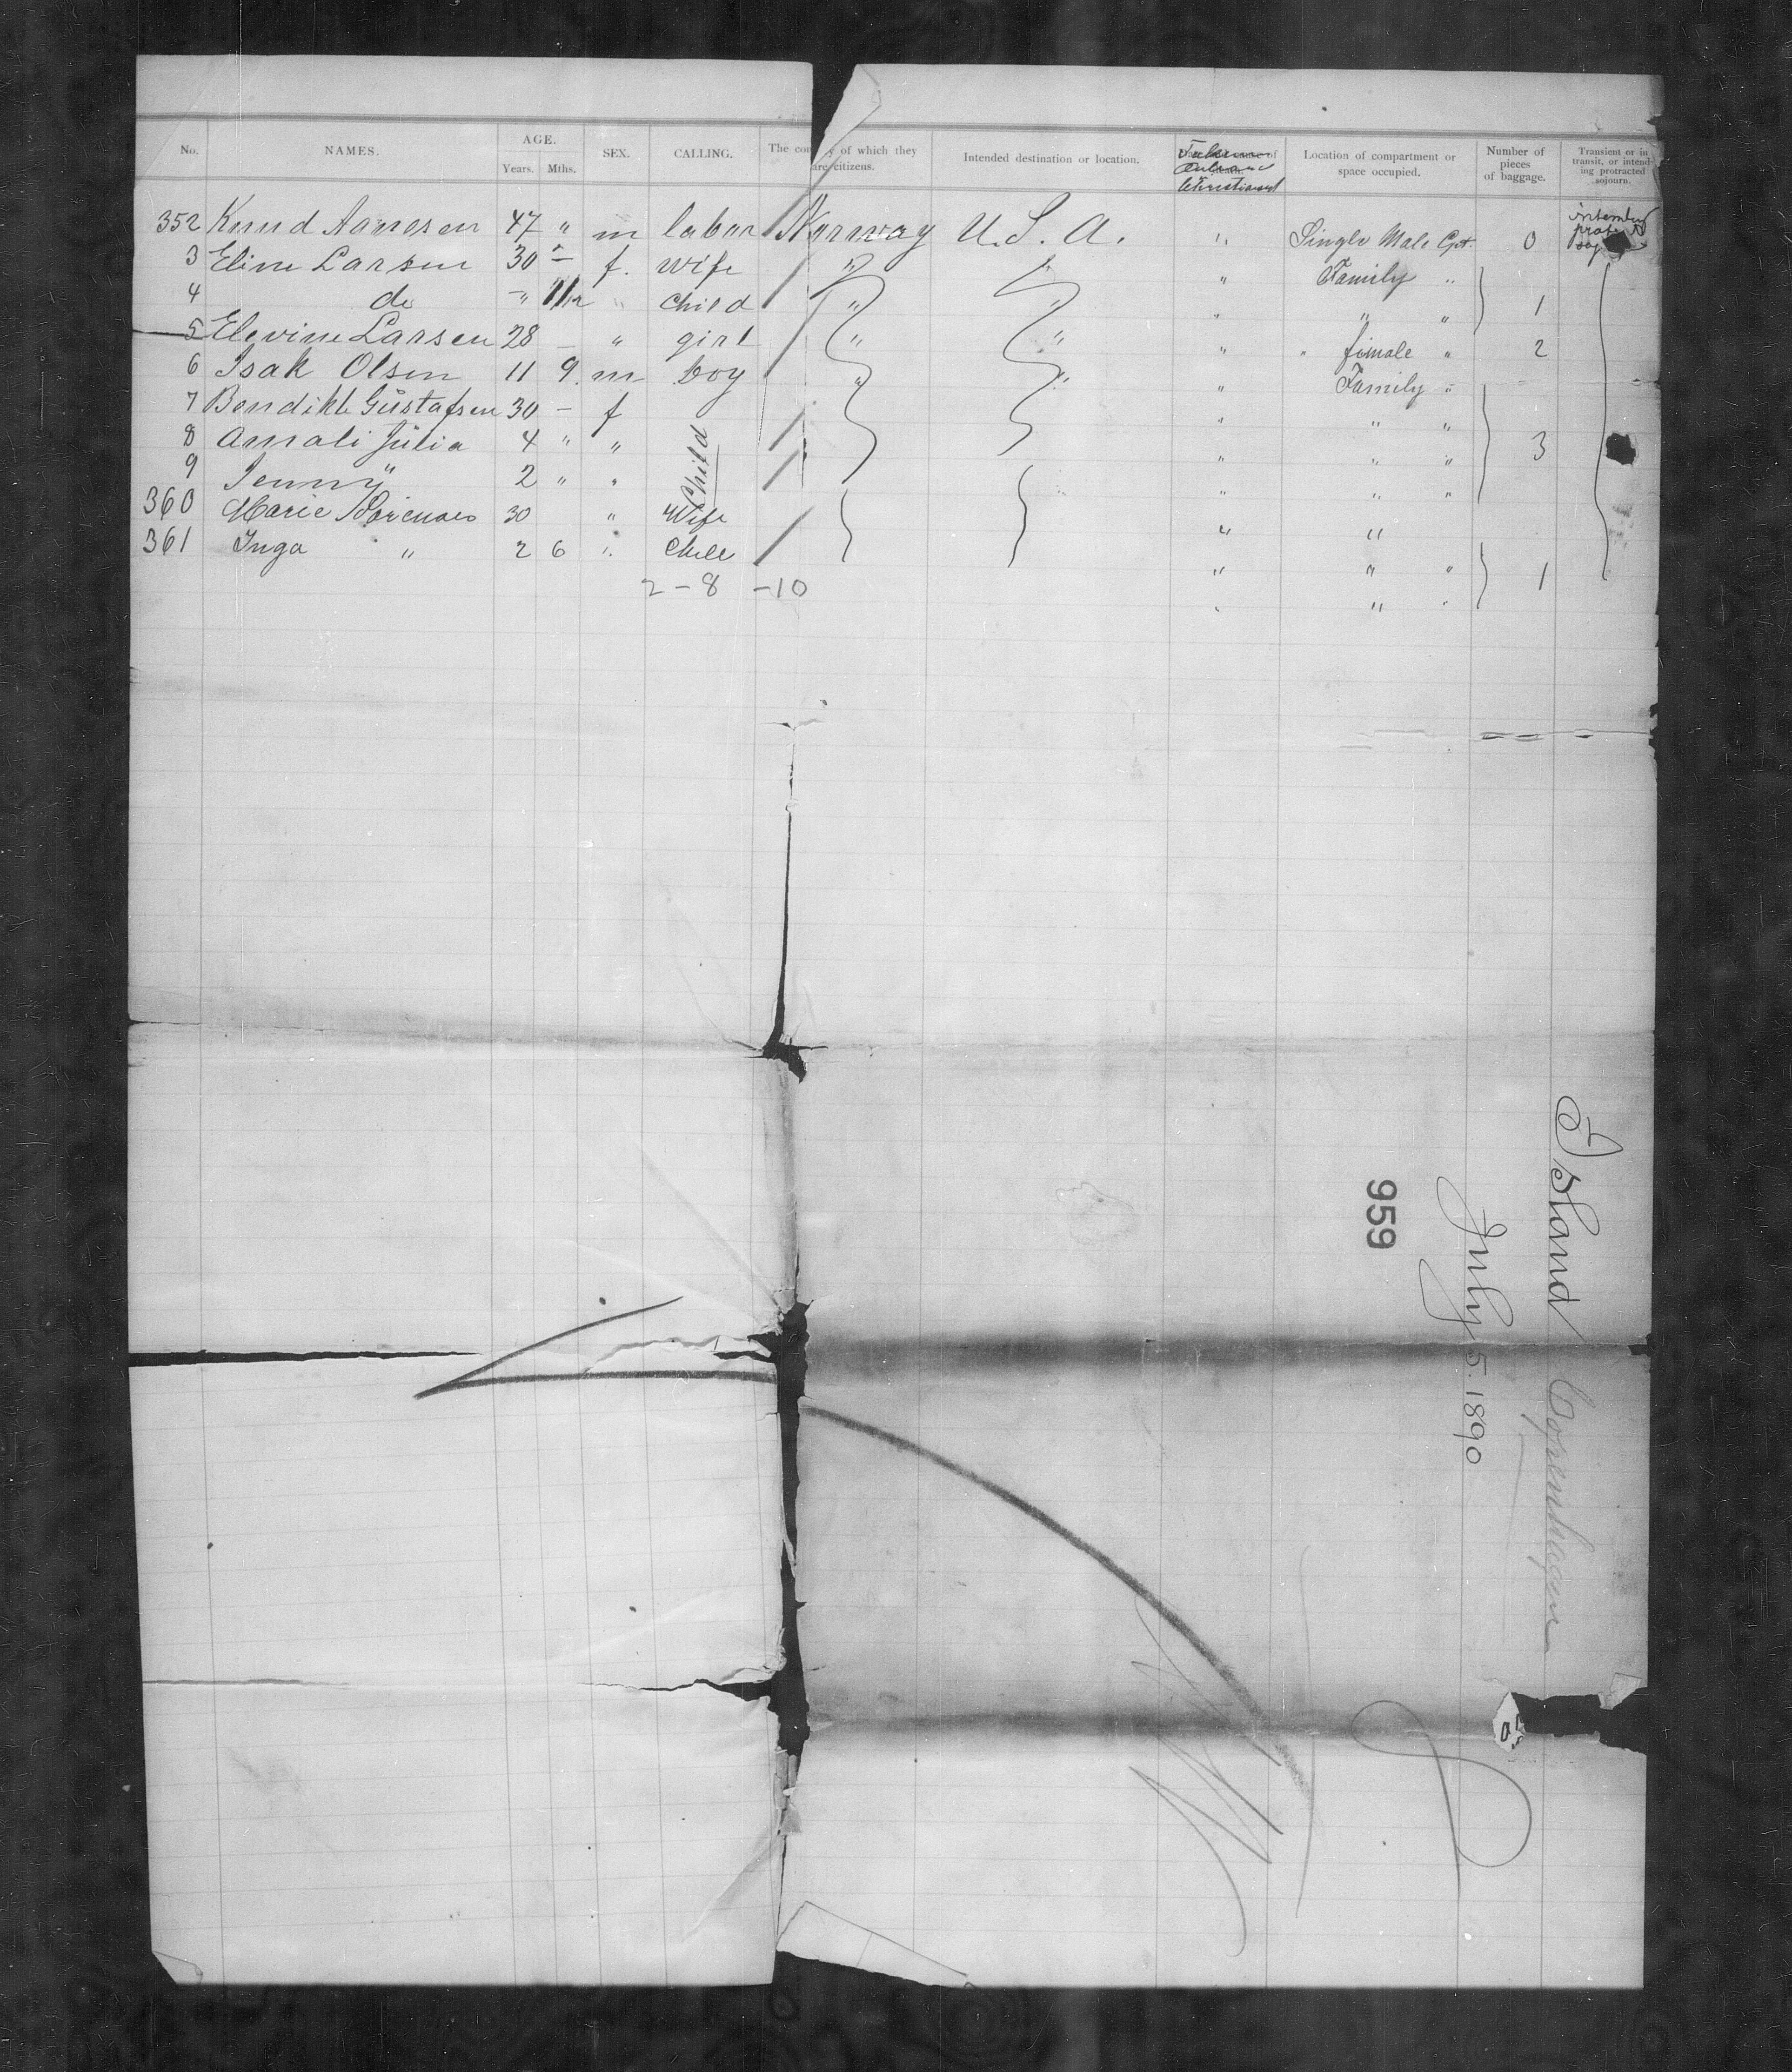 No. NAMES. AGE. Years. Mths. SEX. CALLING. The co of which they are citizens. Intended destination or location. Christiansd Location of compartment or space occupied. Number of pieces of baggage. Transient or in transit, or intending protracted sojourn.
352 Knud Aanesen 47 " m labor Norway U. S. A. " Single Male Cpt. 0
3 Eline Larsen 30 - f. wife " " " Family "
4 do " 11/12 " child " " " " " 1
5 Elevine Larsen 28 " girl " " " " female " 2
6 Isak Olsen 11 9 m boy " " " Family "
7 Bendikte Gustafsen 30 - f " " "
8 Amali Julia 4 " " Child " " " 3
9 Jenny " 2 " " " " "
360 Marie 30 " Wife " "
361 Inga " 2 6 " Child " " " 1
2 - 8 - 10 " " "
Island Copenhagen
July 5. 1890
959